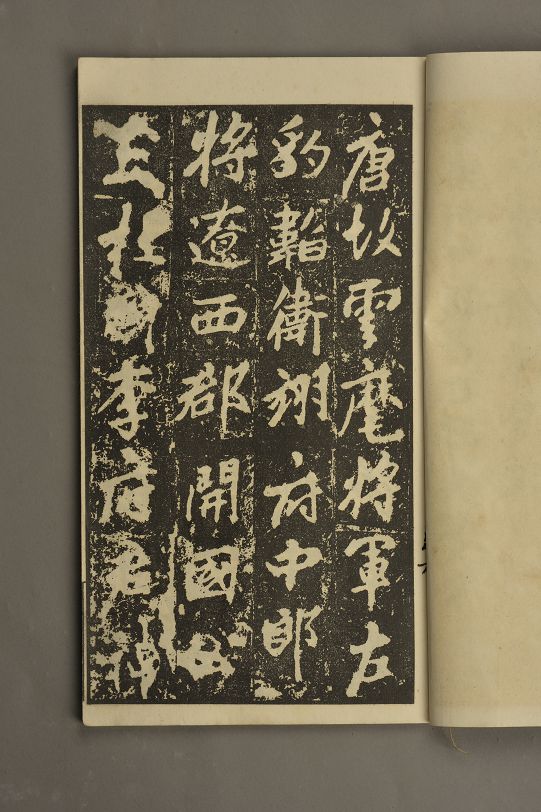 唐故雲麾將軍左
豹韜衛翊府中郎
將遼西郡開國公
上柱國李府君神